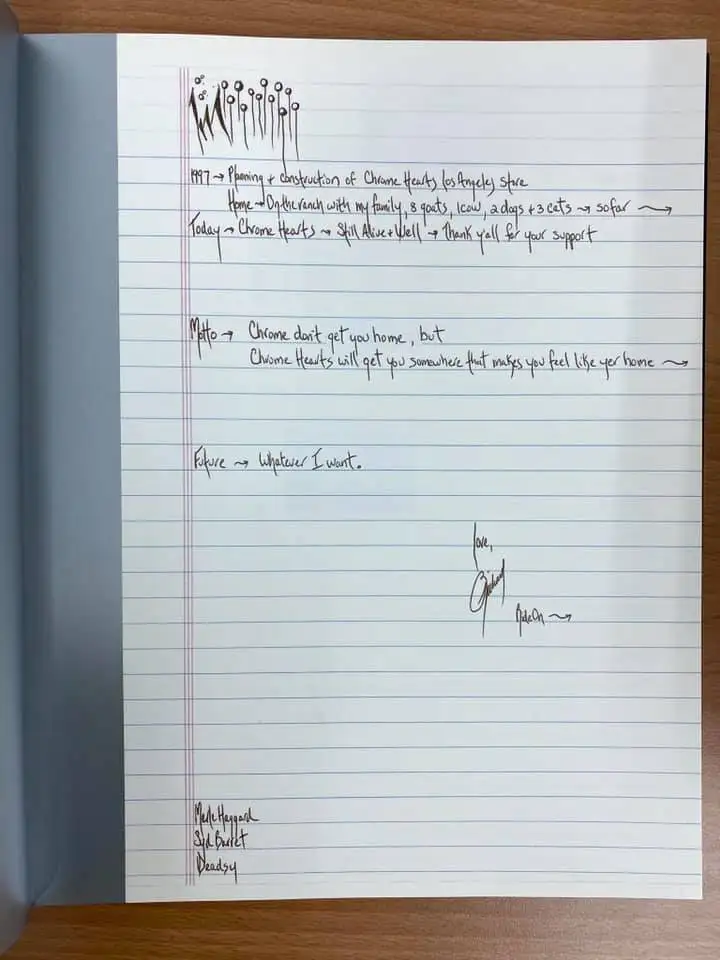 1997 → Planning + construction of Chrome Hearts Los Angeles Store
Home → On the ranch with my family, 8 goats, 1 cow, 2 dogs + 3 cats → so far →
Today → Chrome Hearts → Still Alive + Well → Thank y'all for your support
Motto → Chrome don't get you home, but
Chrome Hearts will get you somewhere that makes you feel like yer home →
Future → Whatever I want.
Love,
Richard
Ride On →
Merle Haggard
Syd Barret
Deadsy